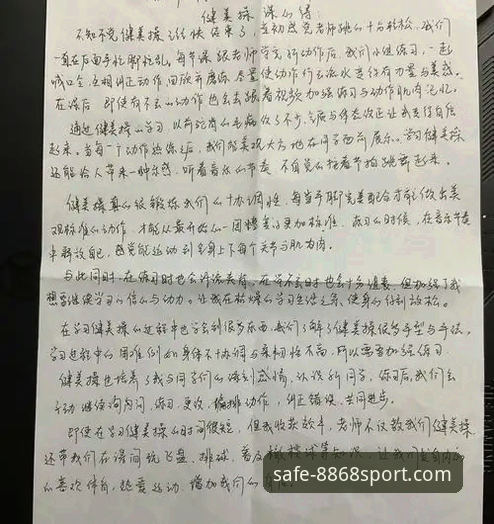 健美操课心得:
不知不觉健美操课快结束了,最初感觉老师跳的十分轻松,我们
一直在后面手忙脚乱,每节课跟老师学完新动作后,我们小组练习,一起
喊口令,互相纠正动作,回放并磨练,尽量使动作行云流水并保有力量与美感。
在课后,即使有不会的动作也会去跟着视频加强练习与动作肌肉记忆。
通过健美操的学习,以前驼背的毛病改了不少,气质与体态改正让我变得自信
起来。当每一个动作熟练后,我们能美观大方地在同学面前展示。学习健美操
还能给人带来一种乐感,听着音乐的节奏,不自觉的拍着节拍跳舞起来。
健美操真的很锻炼我们的协调性,每当手脚完美配合才能做出美
观标准的动作,才能从最开始的一团糟变的更加标准。练习的时候,在音乐节奏
中释放自己,感觉能运动到全身上下每个关节与肌肉。
与此同时,在练习时也会许流着汗,在学不会时也会十分懊丧,但加强了我
想要继续学习的信心与动力。让我在枯燥的学习生活之余,使身心得到放松。
在学习健美操的过程中也学会到很多东西,我们了解了健美操很多手型与手法,
学习过程中的困难例如身体不协调与柔韧性不高,所以需要加强练习
健美操也培养了我与同学们的深刻感情,认识新同学,练习后,我们会
主动继续询问问,练习,更改,编排动作,纠正错误,共同进步。
即使在学习健美操的时间很短,但我收获颇丰,老师不仅教我们健美操
还带我们在课间玩飞盘、排球,普及橄榄球等知识,让我们发自内心
的喜欢体育,热爱运动,增加我们的
safe-8868sport.com